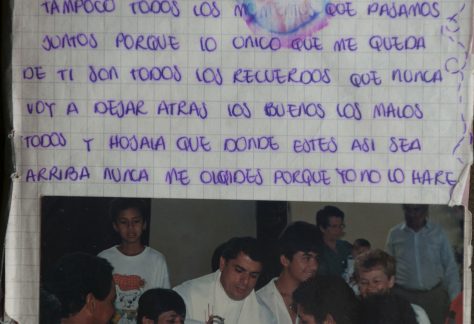 TAMPOCO TODOS LOS MOMENTOS QUE PASAMOS
JUNTOS PORQUE LO UNICO QUE ME QUEDA
DE TI SON TODOS LOS RECUERDOS QUE NUNCA
VOY A DEJAR ATRAS LOS BUENOS LOS MALOS
TODOS Y HOJALA QUE DONDE ESTES ASI SEA
ARRIBA NUNCA ME OLVIDES PORQUE YO NO LO HARE